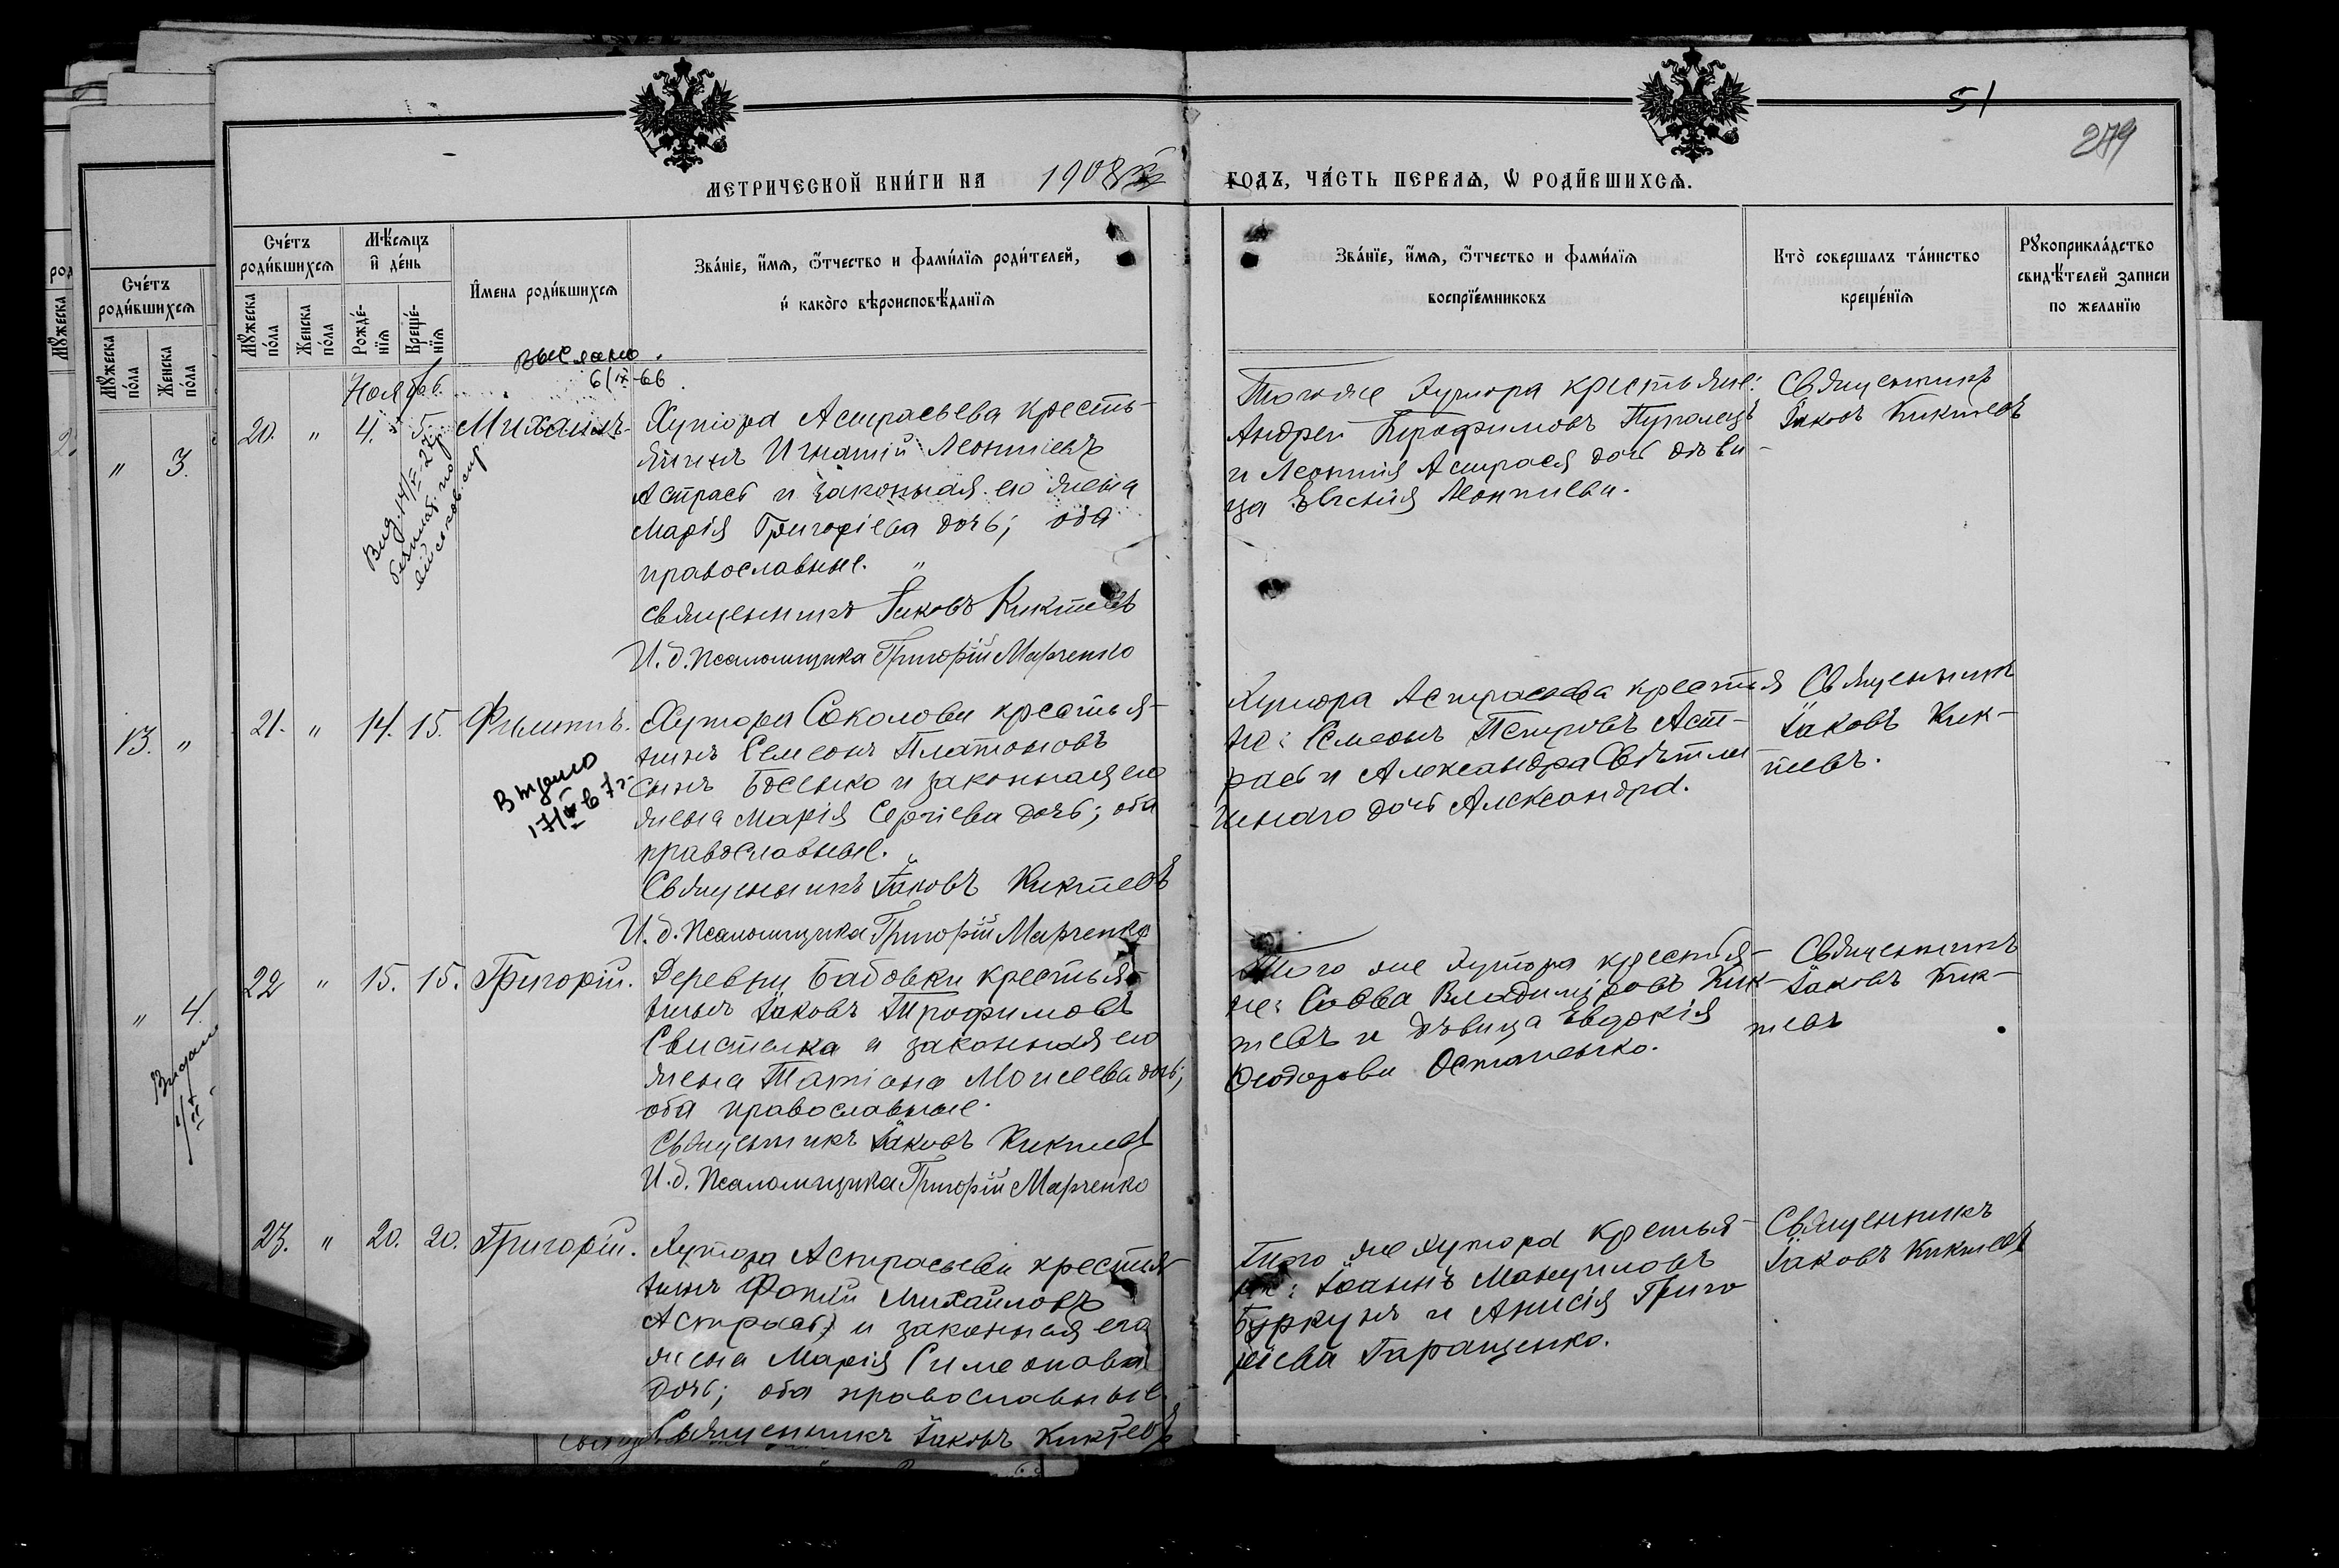 51
279
МЕТРИЧЕСКОЙ КНИ́ГИ НА 1908
ГОДЪ, ЧА́СТЬ ПЕРВАѦ, Ѡ РОДИ́ВШИХСѦ.
Счéтъ роди́вшихсѧ
Мѣ́сѧцъ и̑ де́нь
И̑мена роди́вшихсѧ
Зва́нїе, и̑мѧ, ѻ̑тчество и фами́лїѧ роди́телей,
и̑ како̀го вѣроисповѣ́данїѧ
Зва́нїе, и̑мѧ, ѻ̑тчество и фами́лїѧ
воспрїе́мниковъ
Кто̀ совершалъ та́инство
креще́нїѧ
Рꙋкоприкла́дство
свидѣ́телей записи
по жела́нїю
Мꙋ́жеска по́ла
Же́нска по́ла
Рожде́-
нїѧ
Креще́-
нїѧ
Счéтъ
роди́вшихсѧ
Мꙋ́жеска по́ла
Же́нска по́ла
" 3.
13. "
" 4.
Выслано.
6/IX-66
Ноябр.
20. " 4. 5. Михаилъ.
Хутора Астрасьева кресть-
янинъ Игнатій Леонтіевъ
Астрась и законная его жена
Марія Григоріева дочь; оба
православные.
Священникъ Іаковъ Киктевъ
И. д. Псаломщика Григорій Марченко
Того же хутора крестьяне:
Андрей Трофимовъ
и Леонтія Астрася дочь дѣви-
ца Евгенія Леонтиева.
Священникъ
Іаковъ Киктевъ
21. " 14. 15. Филиппъ.
Видано
17/ 67 г.
Хутора Соколова крестья-
нинъ Семеонъ Платоновъ
сынъ и законная его
жена Марія Сергіева дочь; оба
православные.
Священникъ Іаковъ Киктевъ
И. д. Псаломщика Григорій Марченко
Хутора Астрасьева крестья
не: Семеонъ Петровъ Аст-
рась и Александра Свѣтли
чнаго дочь Александра.
Священникъ
Іаковъ Кик-
тевъ.
22 " 15. 15. Григорій.
Деревни Бабовки крестья-
нинъ Іаковъ Трофимовъ
Свистелка и законная его
жена Татіана Моисеева дочь;
оба православные.
Священникъ Іаковъ Киктевъ
И. д. Псаломщика Григорій Марченко
Того же хутора крестья-
не: Савва Владиміровъ Кик-
тевъ и дѣвица Евдокія
Феодорова Остапенко.
Священникъ
Іаковъ Кик-
тевъ
23. " 20. 20. Григорій.
Хутора Астрасьева крестья-
нинъ Фотій Михаиловъ
Астрась и законная его
жена Марія Симеонова
дочь; оба православные.
Священникъ Іаковъ Киктевъ
Того же хутора крестья-
не: Іоаннъ Мануиловъ
Буркунъ и Анисія Григо
ріева Таращенко.
Священникъ
Іаковъ Киктевъ